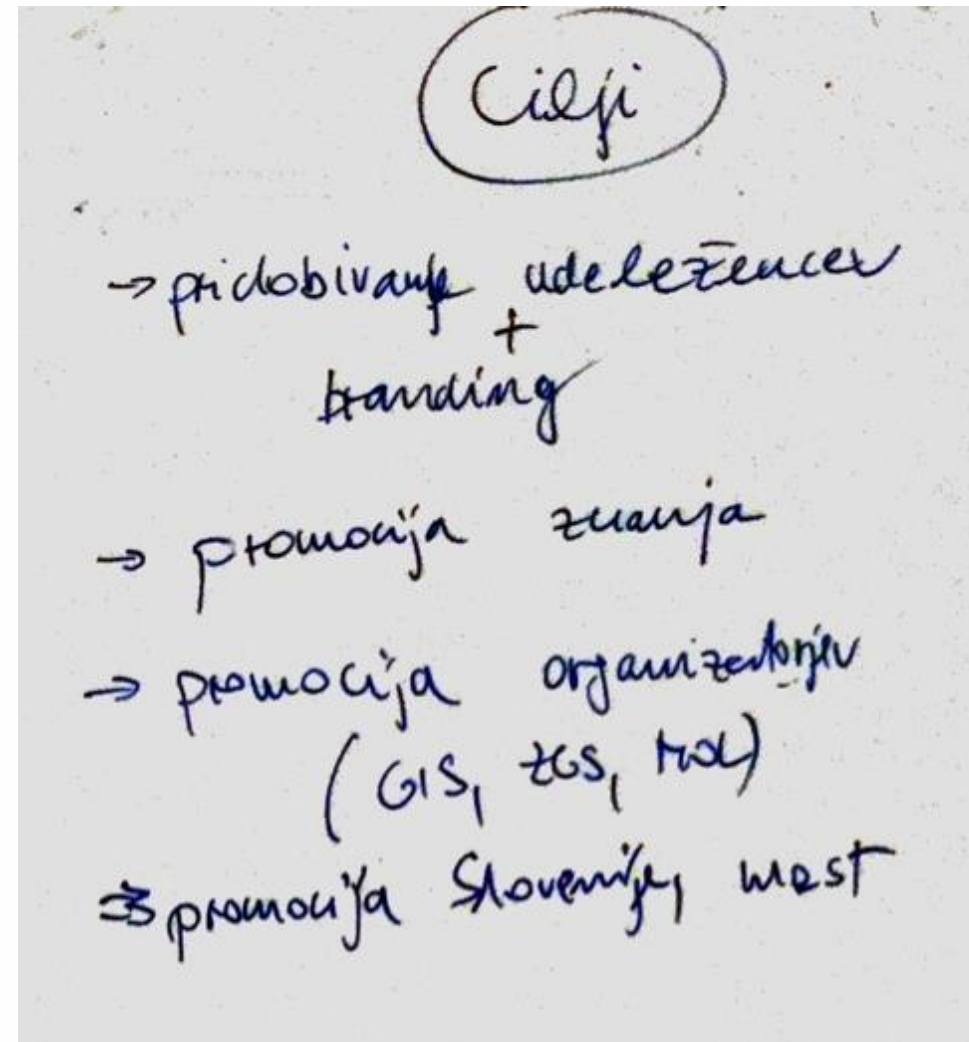 Cilji
→ pridobivanje udeležencev
+
branding
→ promocija znanja
→ promocija organizatorjev
(GIS, ZGS, MOL)
→ promocija Slovenije, mest